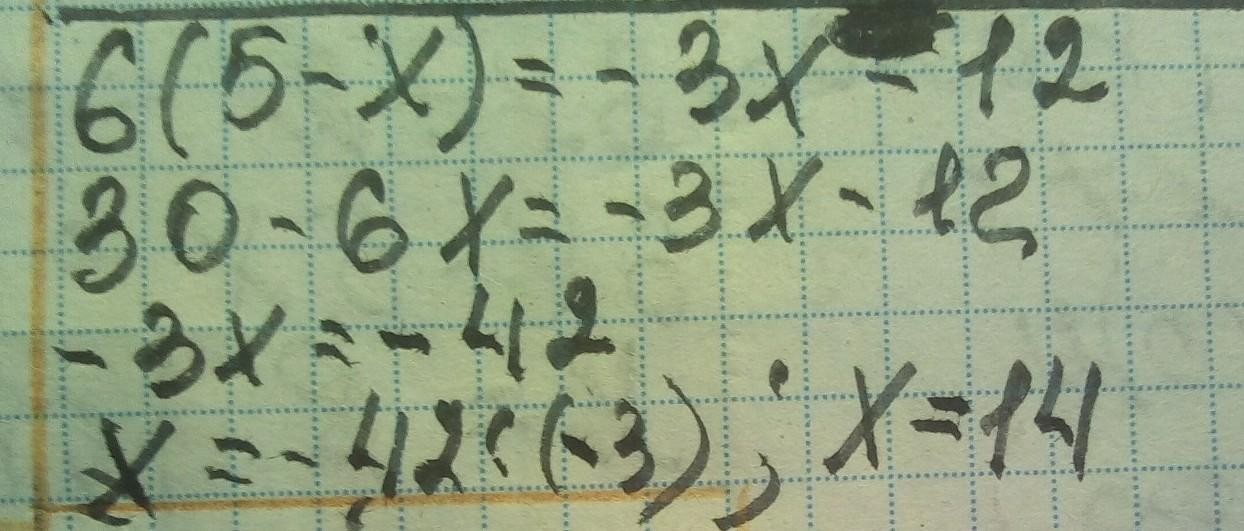 6(5-x)=-3x-12
30-6x=-3x-12
-3x=-42
x=-42:(-3); x=14